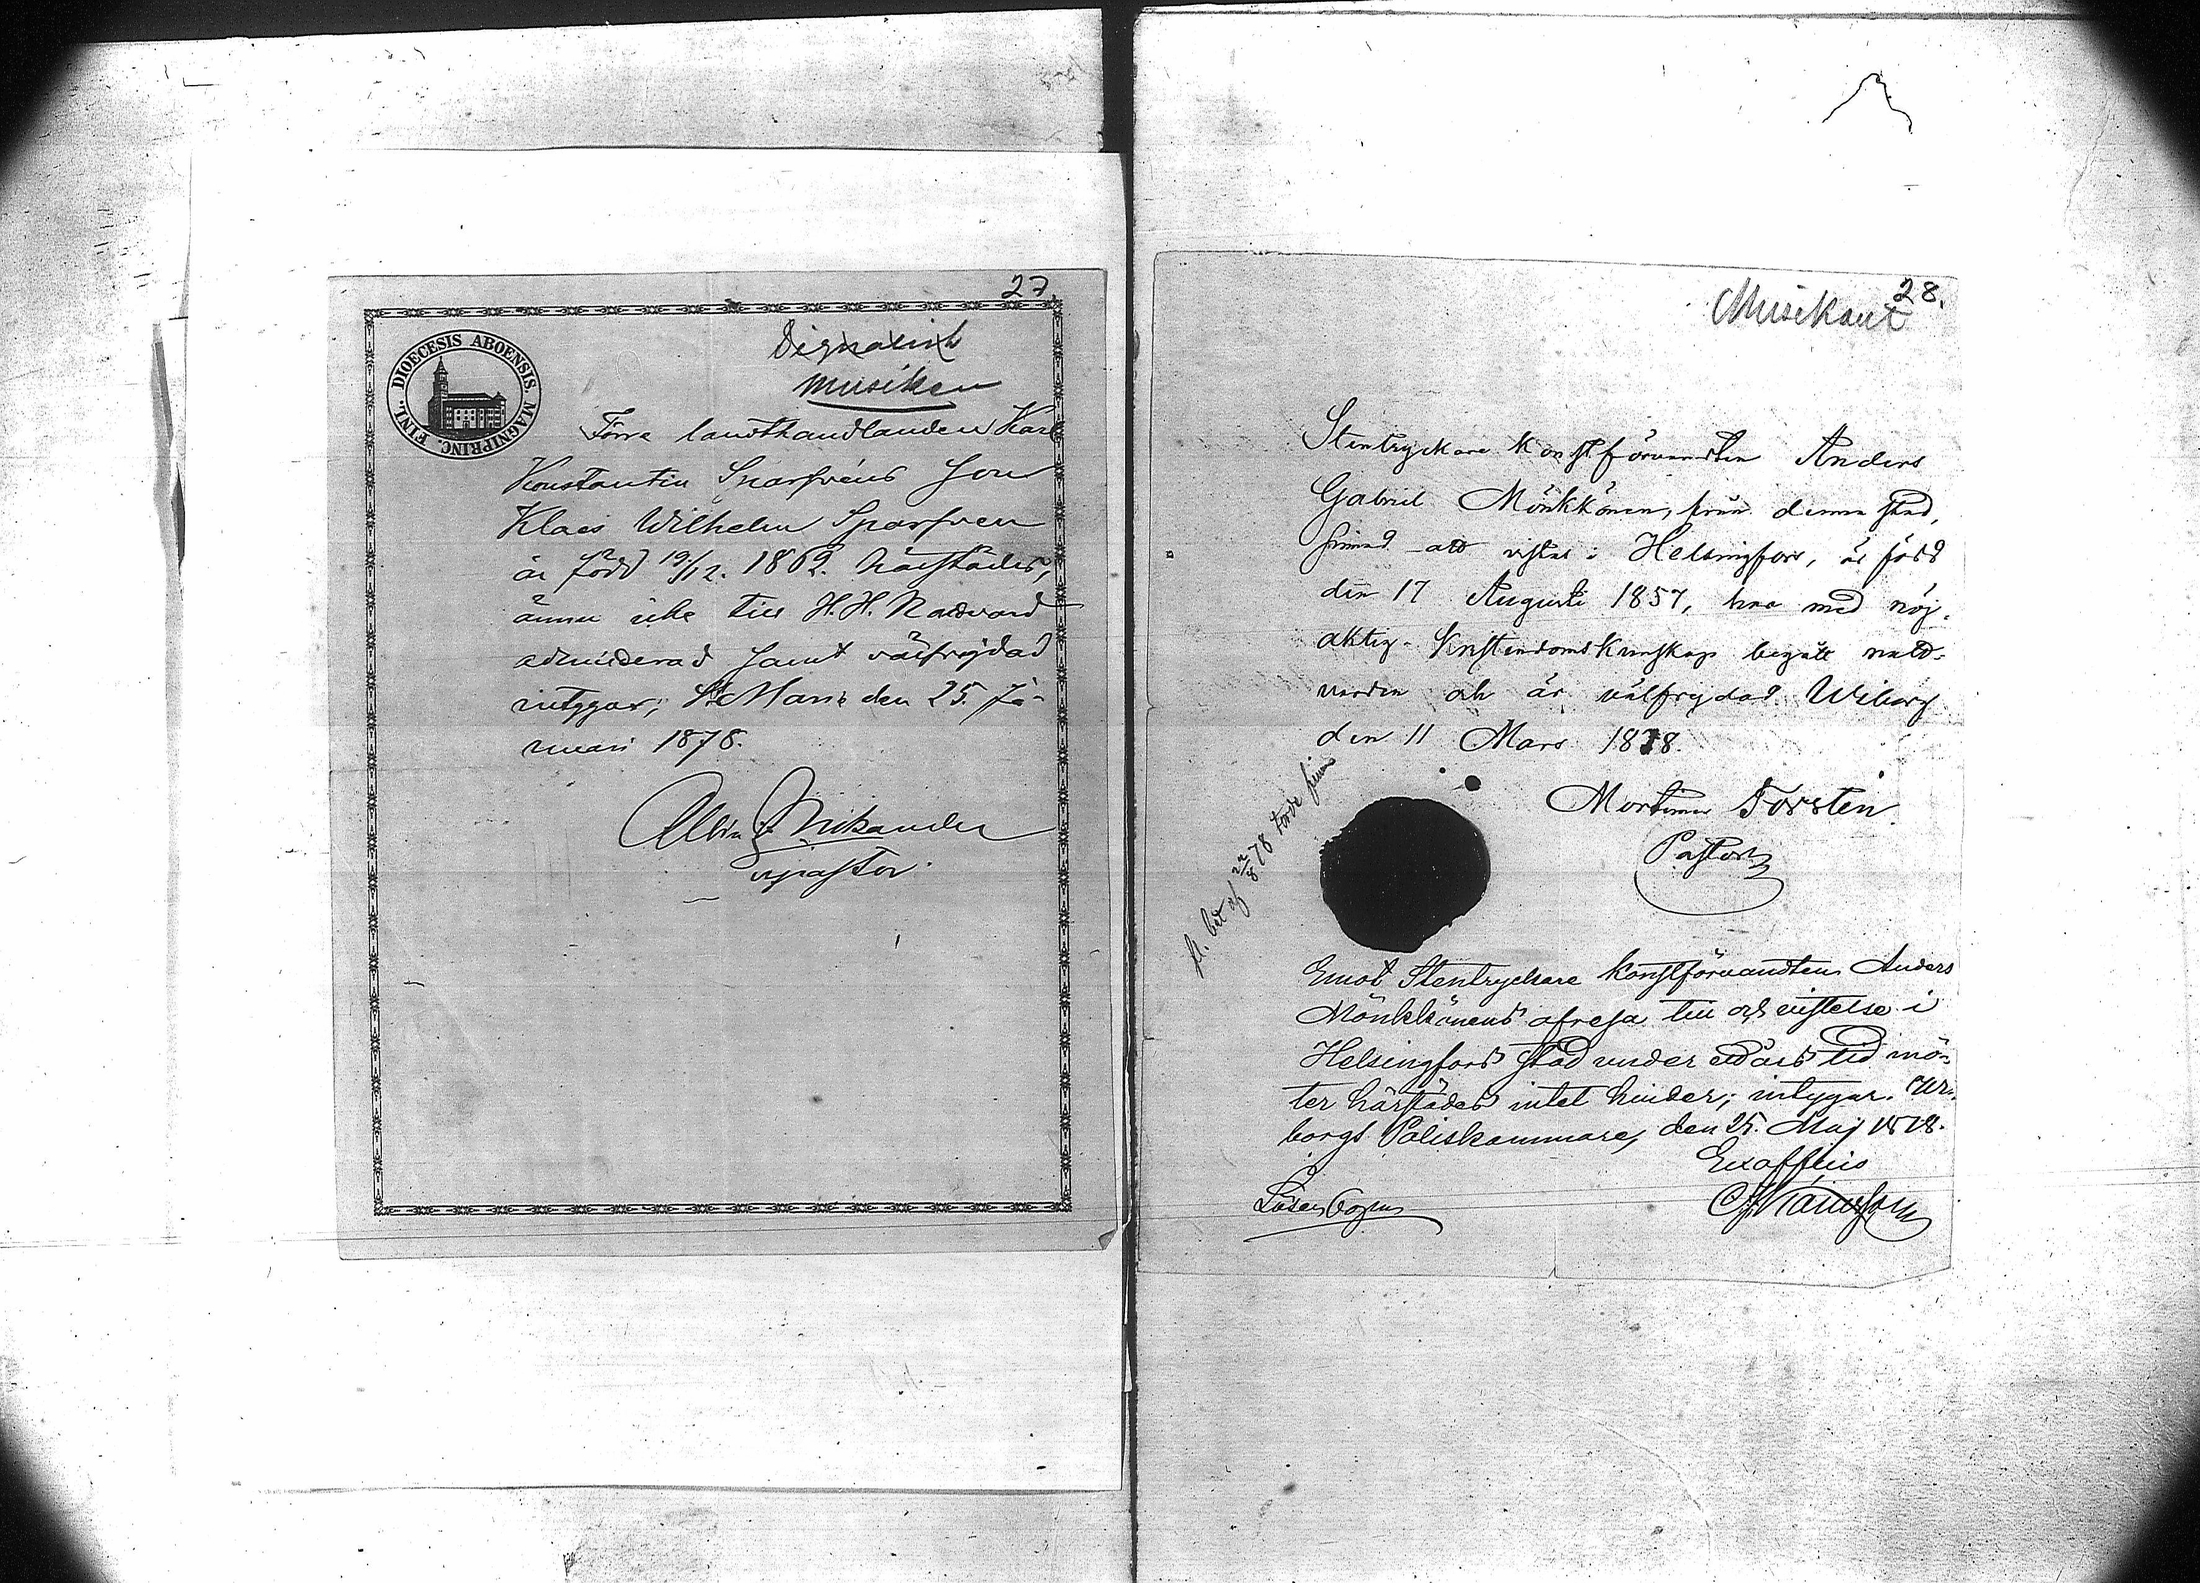 27.
DIOECESIS ABOENSIS MAGNIPRINC. FINL.
Musiken
Förra landthandlanden Karl
Konstantin Sparfvéns son
Klaes Wilhelm Sparfven
är född 19/12. 1862. härstädes,
ännu icke till H. H. Nattvard
admitterad samt välfrejdad
intygar; St Marie den 25. Ja-
nuari 1878.
Albin Nikander
v. pastor.
28.
Musikant
Stentryckare Konstförvandten Anders
Gabriel Mönkkönen, från denna stad,
sinnad att vistas i Helsingfors, är född
den 17 Augusti 1857, har med nöj-
aktig Kristendomskunskap begått natt-
varden och är välfrejdad. Wiborg
den 11 Mars 1878.
Mortimer Forstén
Pastor
af 22/8 78
Emot Stentryckare konstförvandten Anders
Mönkkönens afresa till och vistelse i
Helsingfors stad under ett års tid mö-
ter härstädes intet hinder; intygar. Wi-
borgs Poliskammare, den 25. Maj 1878.
Ex officio
Lösen